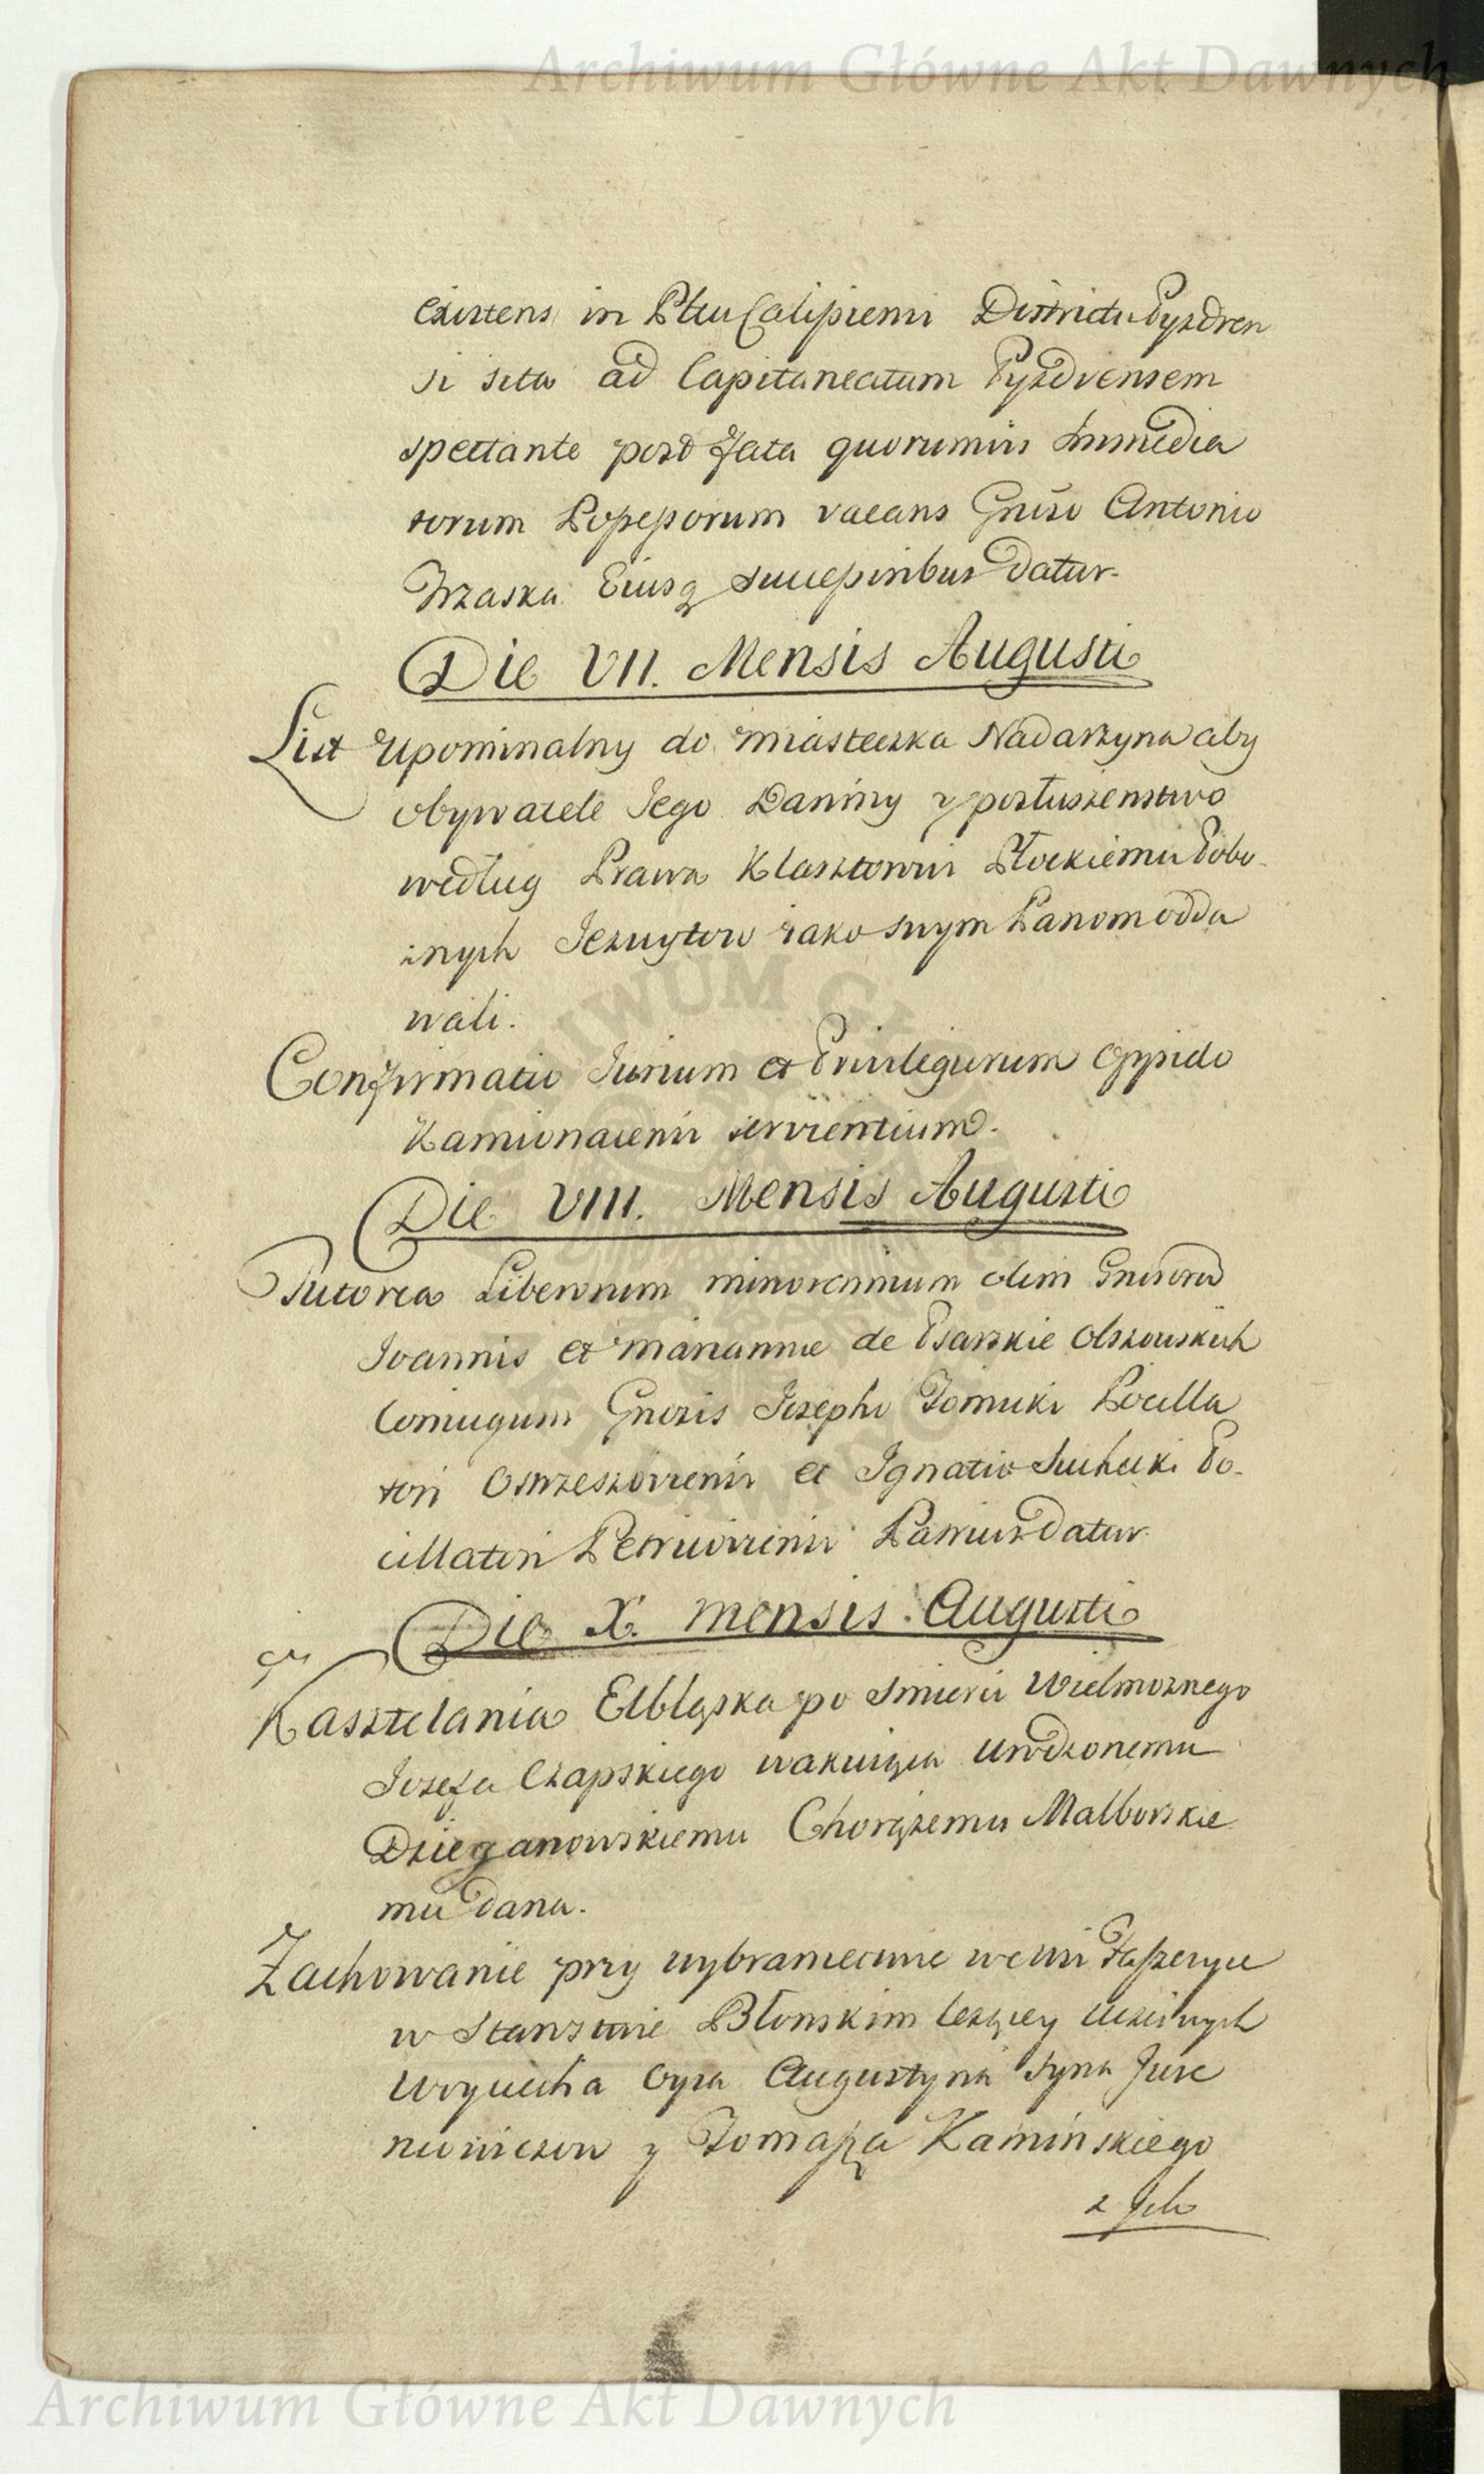 Archiwum Główne Akt Dawnych
Existens in Pttu Calissiensi Districtu Pyzdren
si sita ad Capitaneatum Pyzdrensem
spectante post Fata quorumvis Immedia
torum Possessorum vacans Gnëso Antonio
Trzaska Eiusq successoribus datur.
Die VII. Mensis Augusti
List Upominalny do miasteczka Nadarzyna aby
obywatele Jego Daniny y posłuszenstwo
według Prawa Klasztorowi Płockiemu Pobo-
żnych Jezuytow iako swym Panom odda
wali.
Confirmatio Iurium et Privilegiorum Oppido
Kamionacensi servientium.
Die VIII. Mensis Augusti
Tutoria Liberorum minorennium olim Gnesoru
Ioannis et Mariannae de Psarskie Olszowskich
Coniugum Gnesis Josepho Tomicki Pocilla
tori Ostrzeszoviensi et Ignatio Suchecki Po-
cillatori Petricoviensi Patruis datur.
Die X. mensis Augusti
Kasztelania Elbląska po Smierci Wielmoznego
Jozefa Czapskiego wakuiąca Urodzonemu
Dzieganowskiemu Chorążemu Malborskie
mu dana.
Zachowanie przy wybraniectwie we wsi Faszczyce
w Starostwie Błonskim lezącey Uczciwych
Woyciecha Oyca Augustyna Syna Jurc
y Tomasza Kaminskiego
z Ich
Archiwum Główne Akt Dawnych